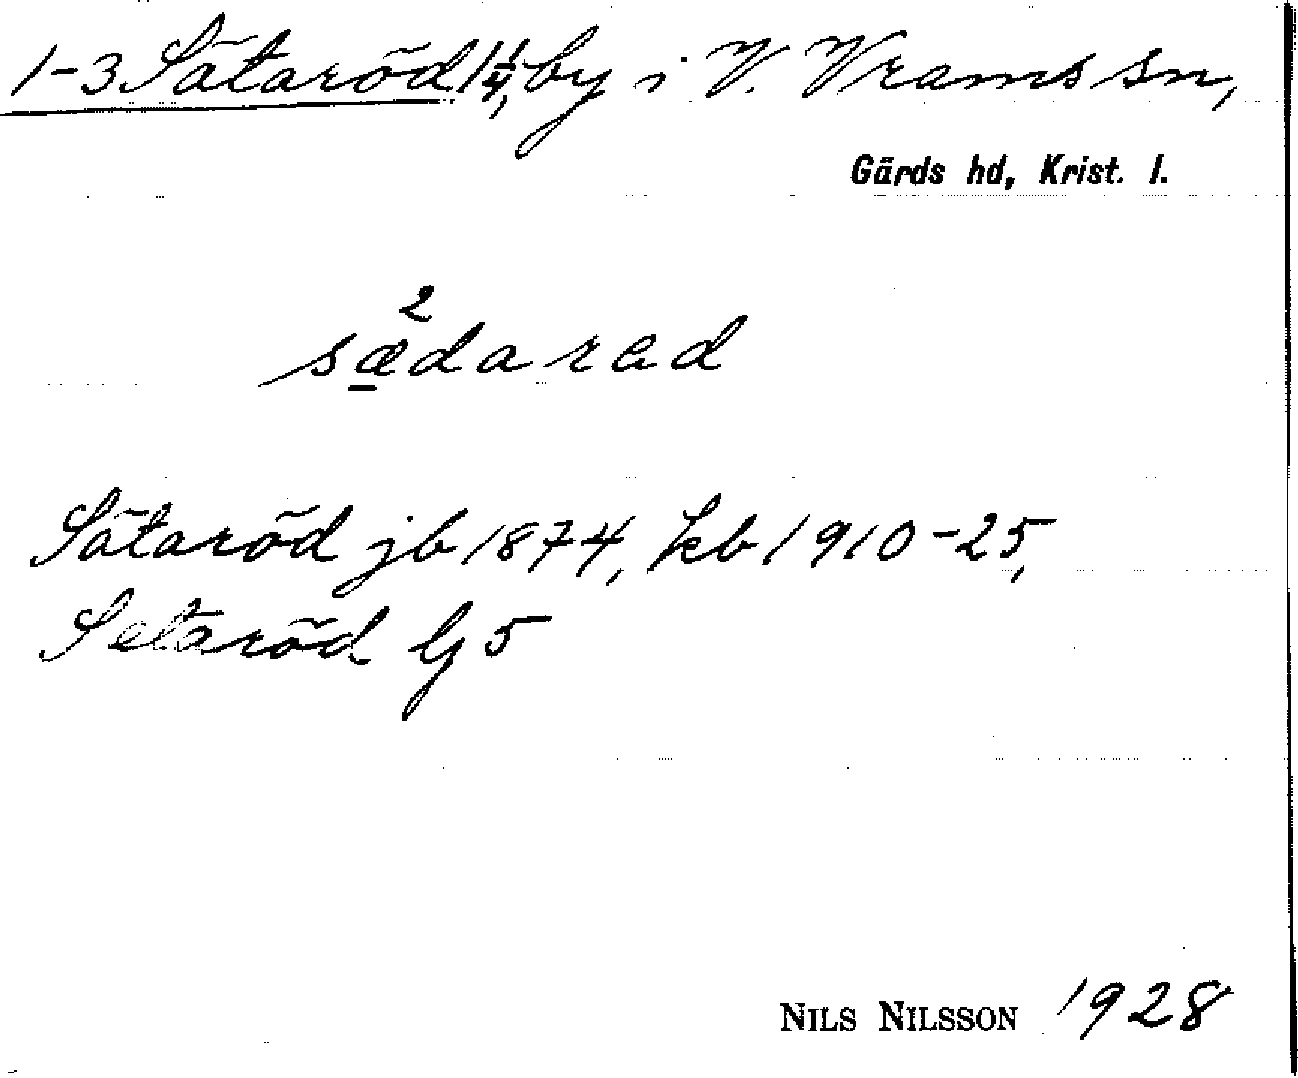 1-3 Sätaröd 1 1/4, by i V. Vrams sn,
Gärds hd, Krist. l.
2
sædarad
Sätaröd jb 1874, kb 1910-25,
Setaröd G 5
NILS NILSSON 1928